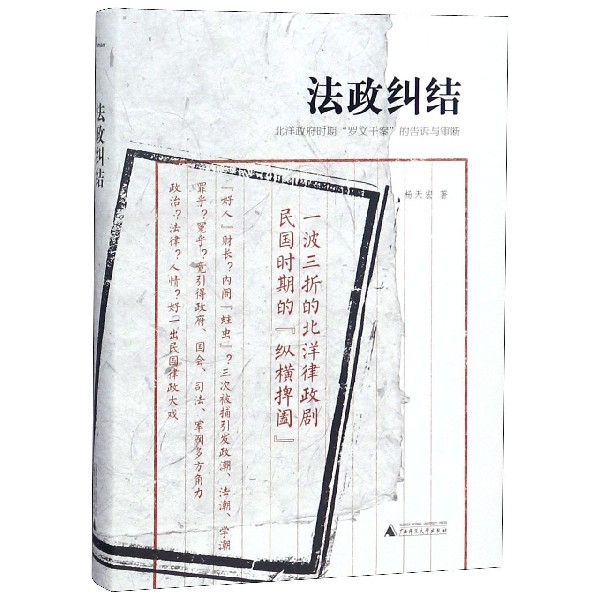 法政纠结
法政纠结
北洋政府时期“罗文干案”的告诉与审断
杨天宏 著
一波三折的北洋律政剧
民国时期的『纵横捭阖』
『好人』财长？内阁『蛀虫』？三次被捕引发政潮、法潮、学潮
罪乎？冤乎？竟引得政府、国会、司法、军阀多方角力
政治？法律？人情？好一出民国律政大戏
广西师范大学出版社